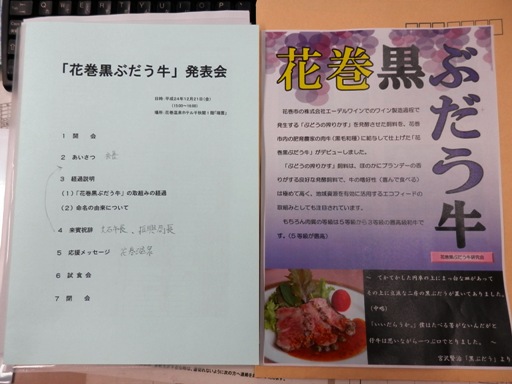 「花巻黒ぶだう牛」発表会
日時:平成24年12月21日(金)
(15:00～16:00)
場所:花巻温泉ホテル千秋閣1階「瑞雲」
1 開 会
2 あいさつ
3 経過説明
(1)「花巻黒ぶだう牛」の取組みの経過
(2)命名の由来について
4 来賓祝辞
5 応援メッセージ 花巻温泉
6 試 食 会
7 閉 会
花巻黒ぶだう牛
花巻市の株式会社エーデルワインでのワイン製造過程で
発生する「ぶどうの搾りかす」を発酵させた飼料を、花巻
市内の肥育農家の肉牛(黒毛和種)に給与して仕上げた「花
巻黒ぶだう牛」がデビューしました。
「ぶどうの搾りかす」飼料は、ほのかにブランデーの香
りがする良好な発酵飼料で、牛の嗜好性(喜んで食べる)
は極めて高く、地域資源を有効に活用するエコフィードの
取組みとしても注目されています。
もちろん肉質の等級は5等級から3等級の最高級和牛で
す。(5等級が最高)
花巻黒ぶだう牛研究会
～ てかてかした円卓の上にまっ白な皿があって
その上に立派な二房の黒ぶだうが置いてありました。
(中略)
「いいだらうか。」僕はたべる筈がないんだがと
仔牛は思いながら一つぶ口でとりました。 ～
宮沢賢治「黒ぶだう」より